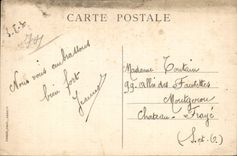 CARTE POSTALE
Nous vous embrassons
bien fort
Madame Toutain
29 allée des Fauvettes
Montgeron
Chateau - Frayé
(S.et.O.)